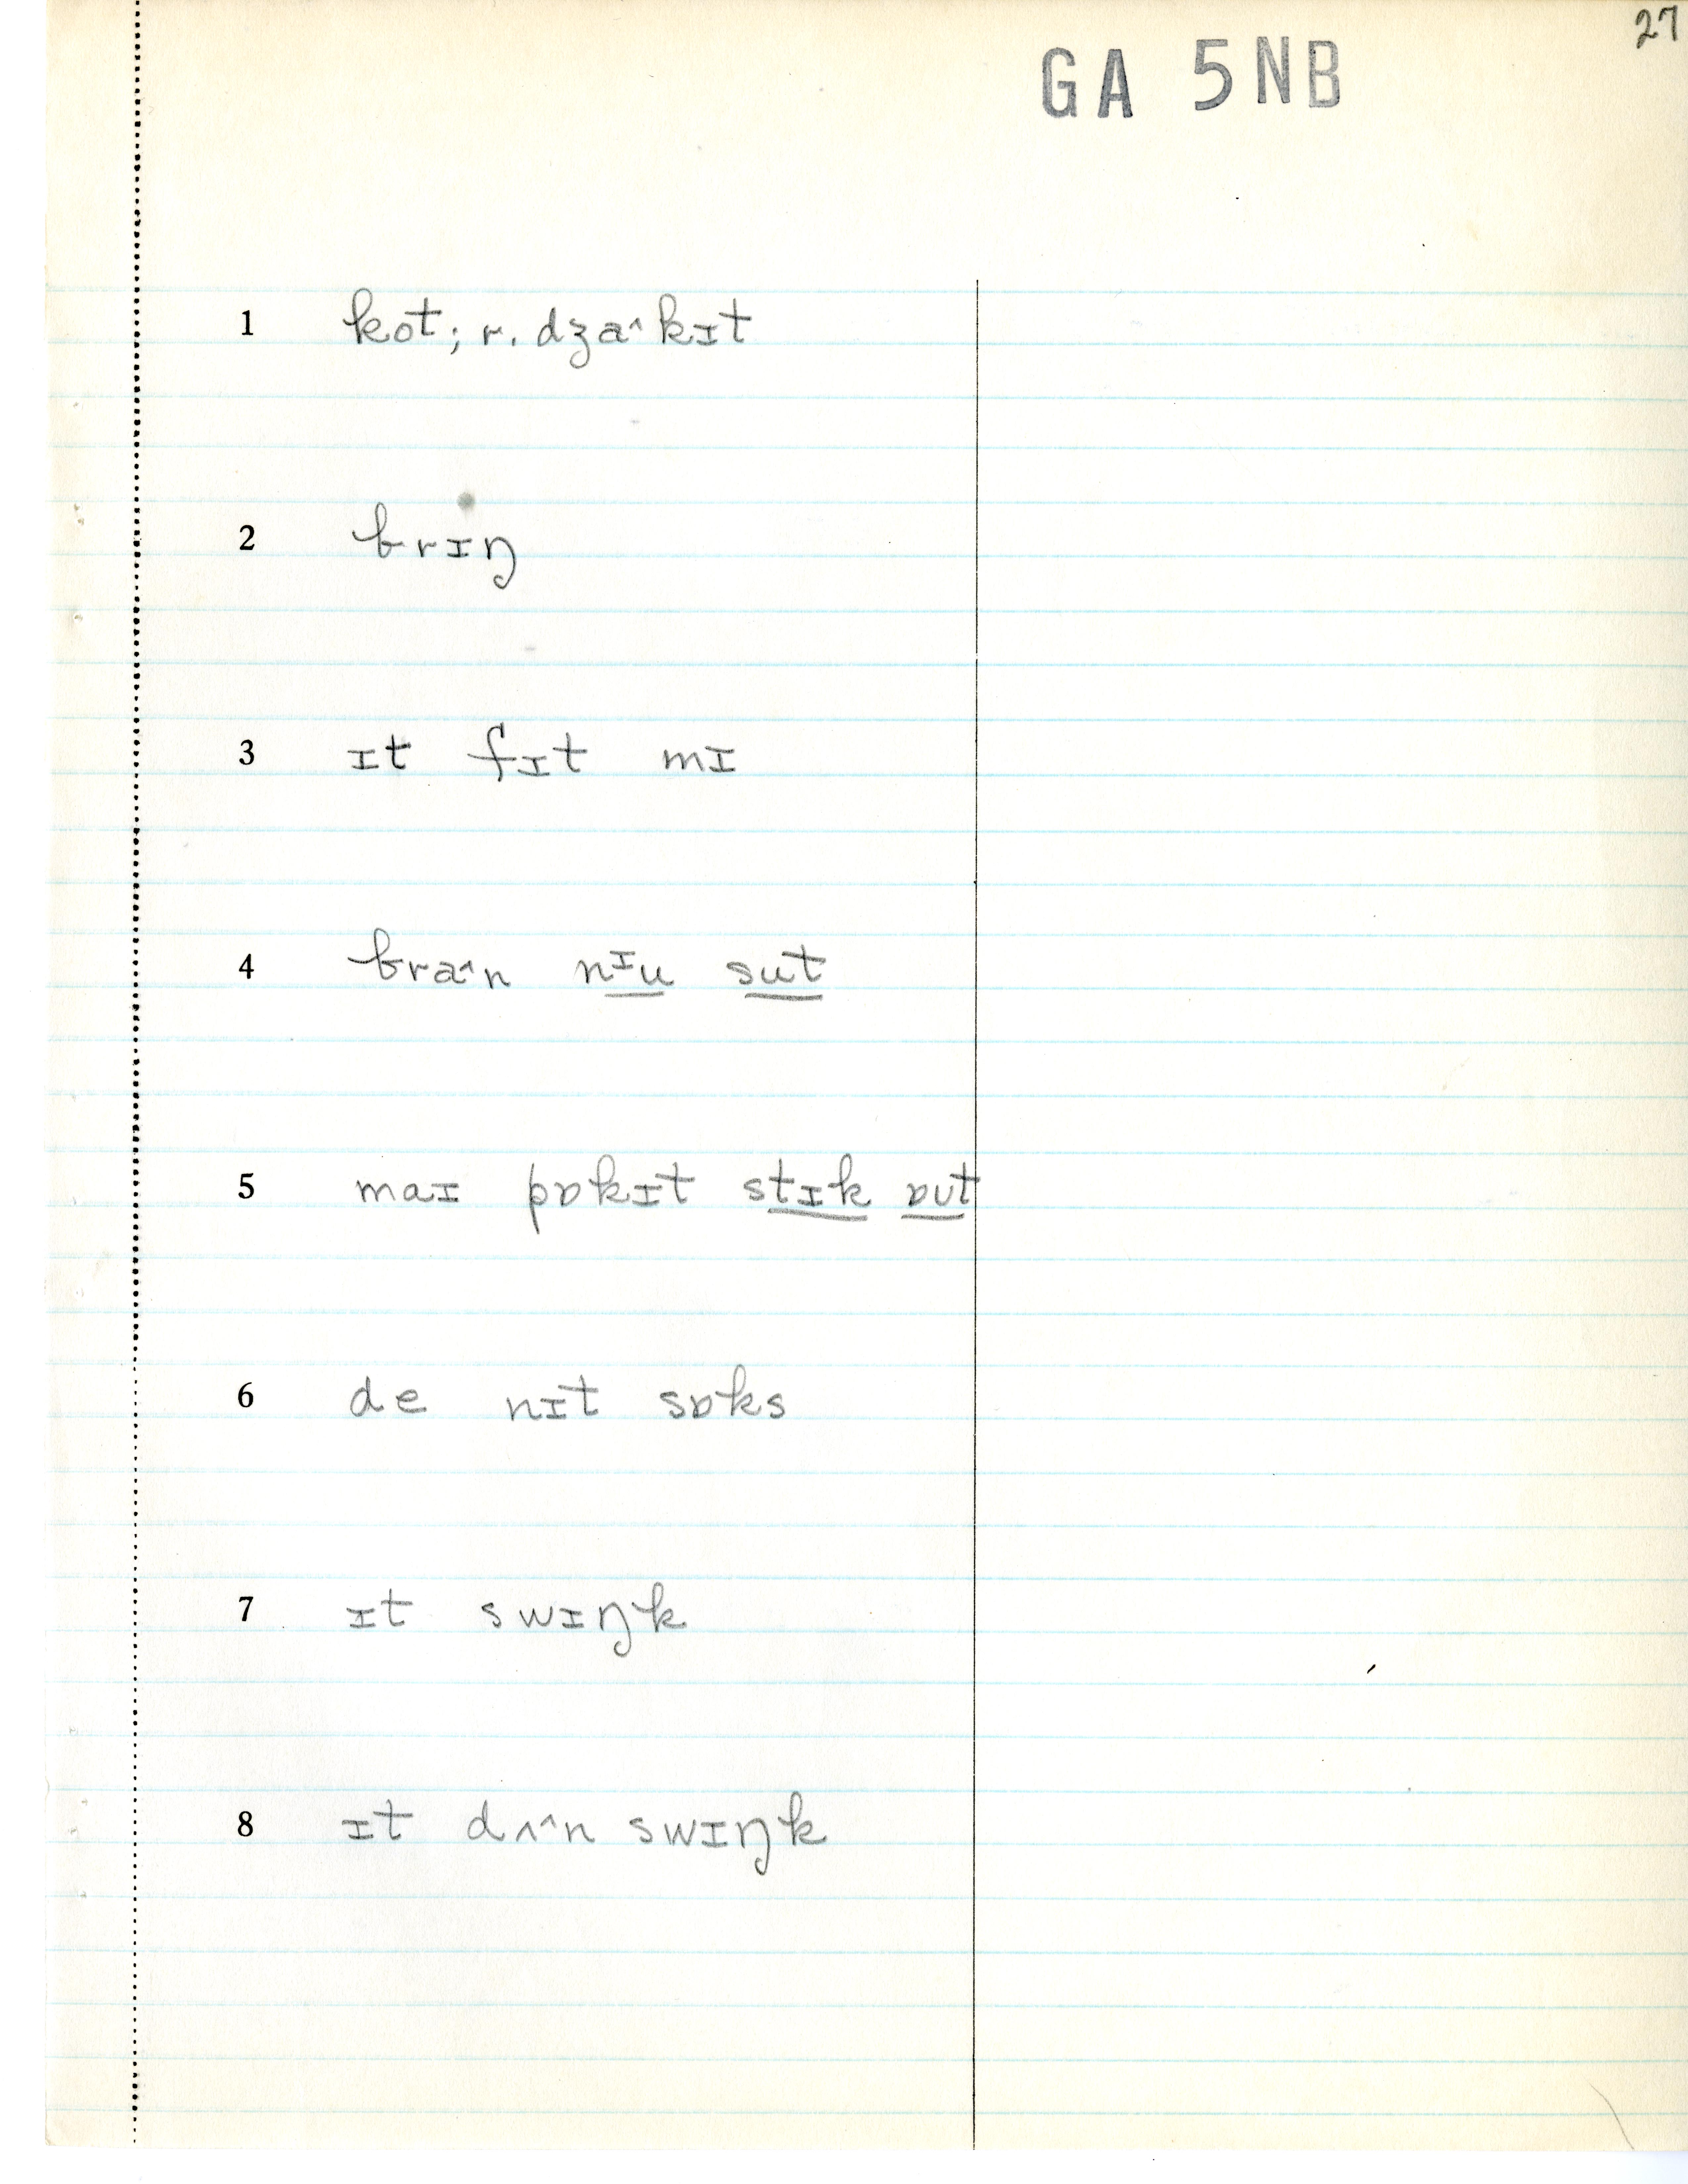 27
GA 5NB
1 kot; r. dʒaˆkɪt
2 brɪŋ
3 ɪt fɪt mɪ
4 braˆn nɪu sut
5 maɪ pɒkɪt stɪk ɒut
6 de nɪt sɒks
7 ɪt swɪŋk
8 ɪt dʌˆn swɪŋk